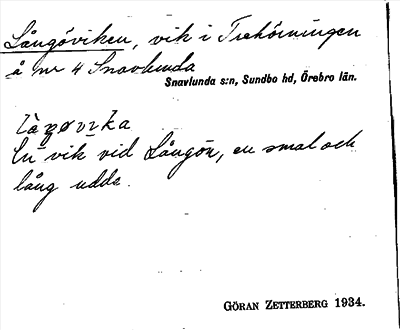 Långöviken, vik i Trehörningen
å nr 4 Snavlunda
Snavlunda s:n, Sundbo hd, Örebro län.
En vik vid Långön, en smal och
lång udde.
GÖRAN ZETTERBERG 1934.